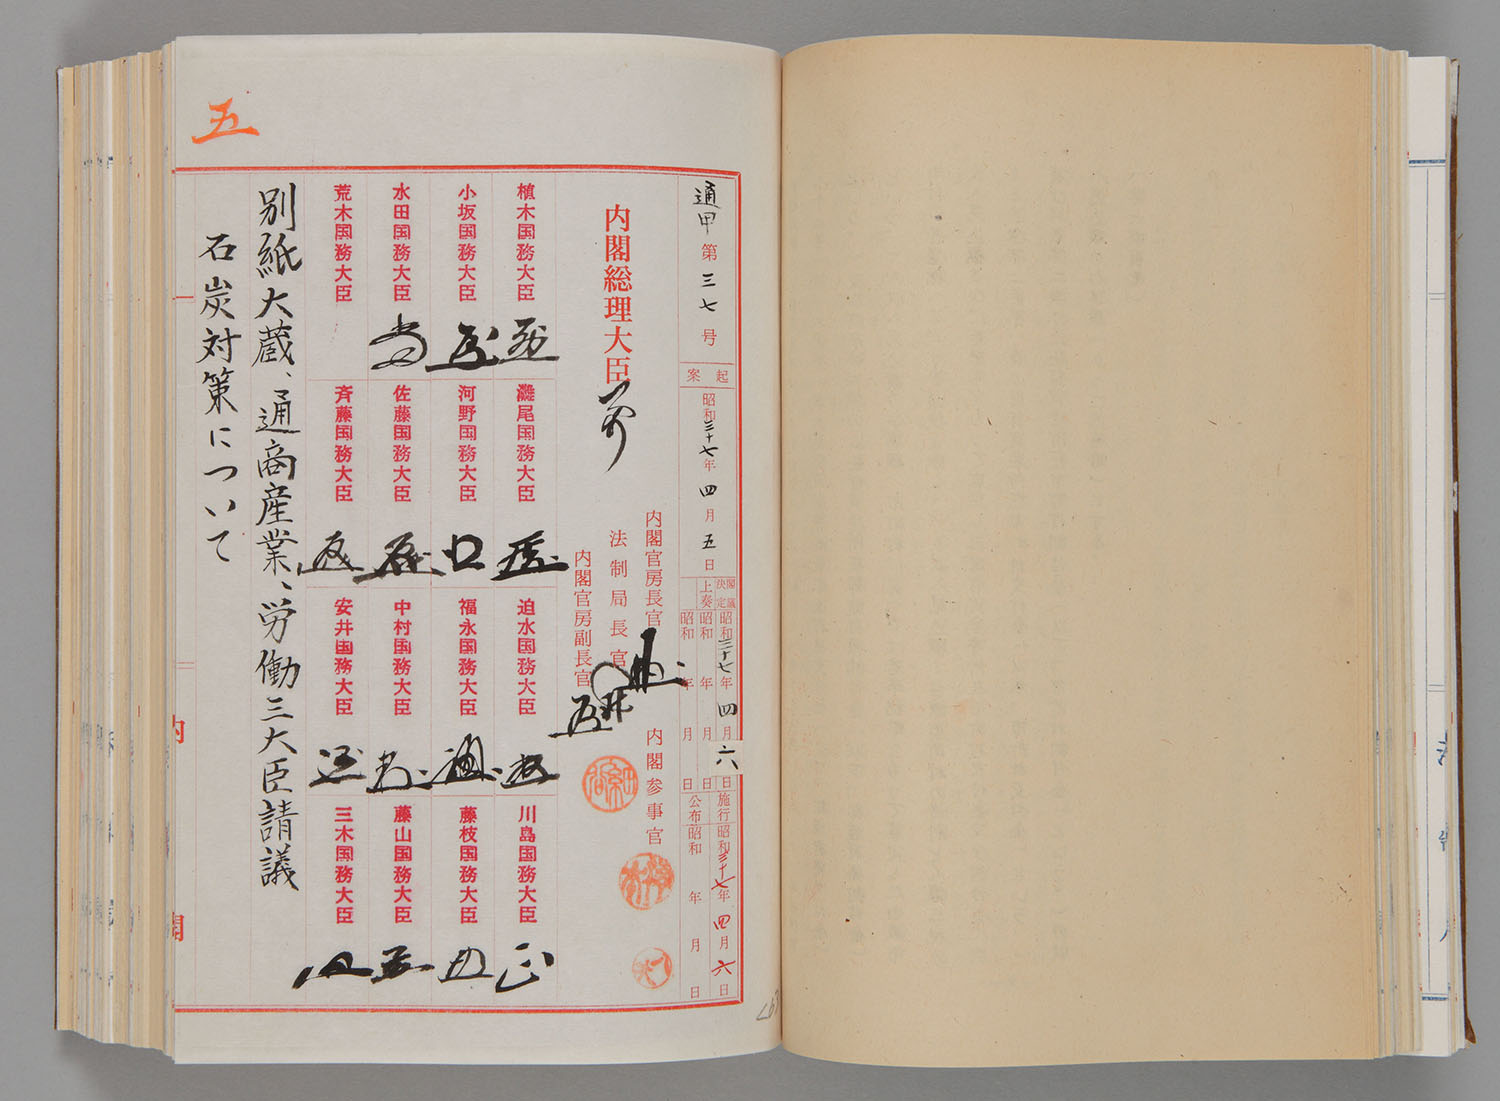 五
通甲第三七号
起案
昭和三十七年四月五日
閣議決定
昭和三十七年四月六日
上奏
昭和 年 月 日
昭和 年 月 日
施行
昭和三十七年四月六日
公布
昭和 年 月 日
内閣総理大臣
内閣官房長官
法制局長官
内閣官房副長官
内閣参事官
植木国務大臣
灘尾国務大臣
迫水国務大臣
川島国務大臣
小坂国務大臣
河野国務大臣
福永国務大臣
藤枝国務大臣
水田国務大臣
佐藤国務大臣
中村国務大臣
藤山国務大臣
荒木国務大臣
斉藤国務大臣
安井国務大臣
三木国務大臣
別紙大蔵、通商産業、労働三大臣請議
石炭対策について
内閣